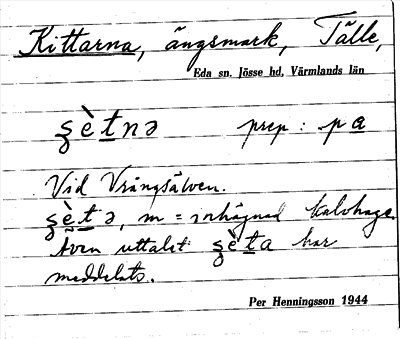 Kittarna, ängsmark, Tålle,
Eda sn. Jösse hd, Värmlands län
ʂè̀tnə prep : pa
Vid Vrångsälven.
ʂètə, m = inhägnad kalvhage.
Även uttalet ʂèta har
meddelats.
Per Henningsson 1944